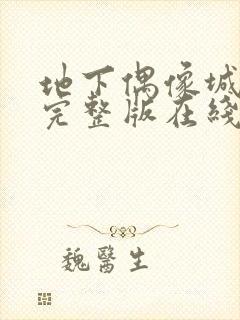 地下偶像城
完整版在綫
魏醫生